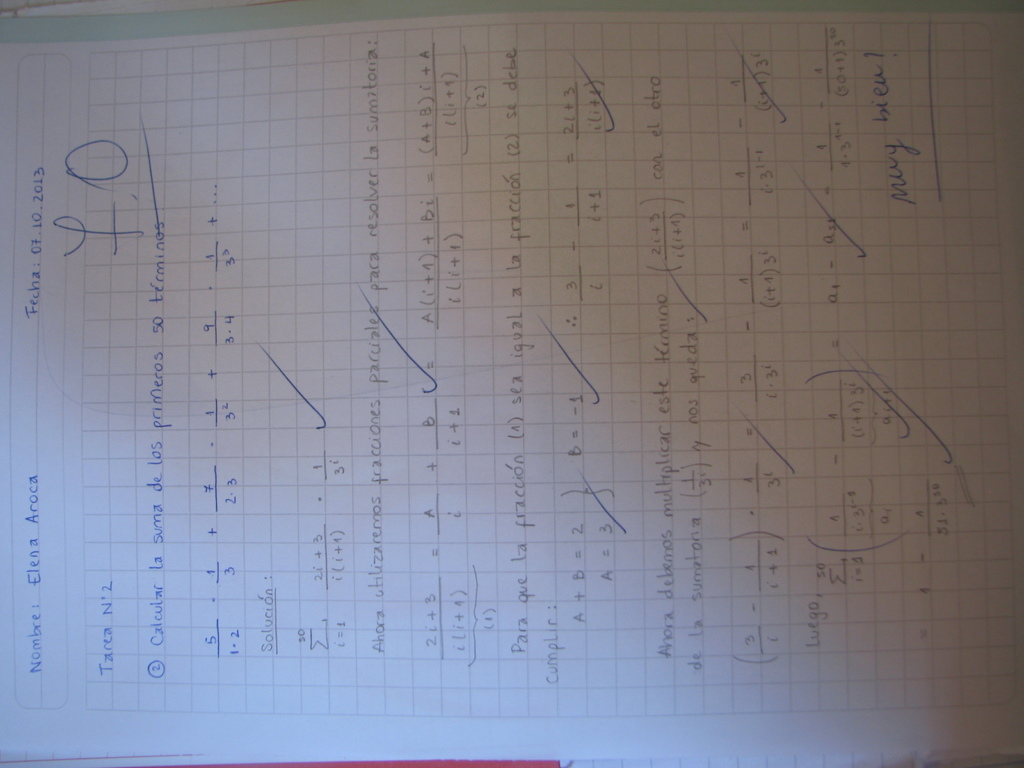 Nombre: Elena Aroca Fecha: 07.10.2013
Tarea N°2
7,0
② Calcular la suma de los primeros 50 términos
5/(1·2) · 1/3 + 7/(2·3) · 1/3² + 9/(3·4) · 1/3³ + ...
Solución:
∑_{i=1}^{50} (2i+3)/(i(i+1)) · 1/3^i
Ahora utilizaremos fracciones parciales para resolver la sumatoria:
(2i+3)/(i(i+1)) = A/i + B/(i+1) = (A(i+1) + Bi)/(i(i+1)) = ((A+B)i + A)/(i(i+1))
(1) (2)
Para que la fracción (1) sea igual a la fracción (2) se debe
cumplir:
A + B = 2 B = -1 ∴ 3/i - 1/(i+1) = (2i+3)/(i(i+1))
A = 3
Ahora debemos multiplicar este término ((2i+3)/(i(i+1))) con el otro
de la sumatoria (1/3^i) y nos queda:
(3/i - 1/(i+1)) · 1/3^i = 3/(i·3^i) - 1/((i+1)3^i) = 1/(i·3^{i-1}) - 1/((i+1)3^i)
Luego, ∑_{i=1}^{50} (1/(i·3^{i-1}) - 1/((i+1)3^i)) = a₁ - a₅₁ = 1/(1·3^{1-1}) - 1/((50+1)3^{50})
a_i a_{i+1}
= 1 - 1/(51·3^{50})
muy bien!